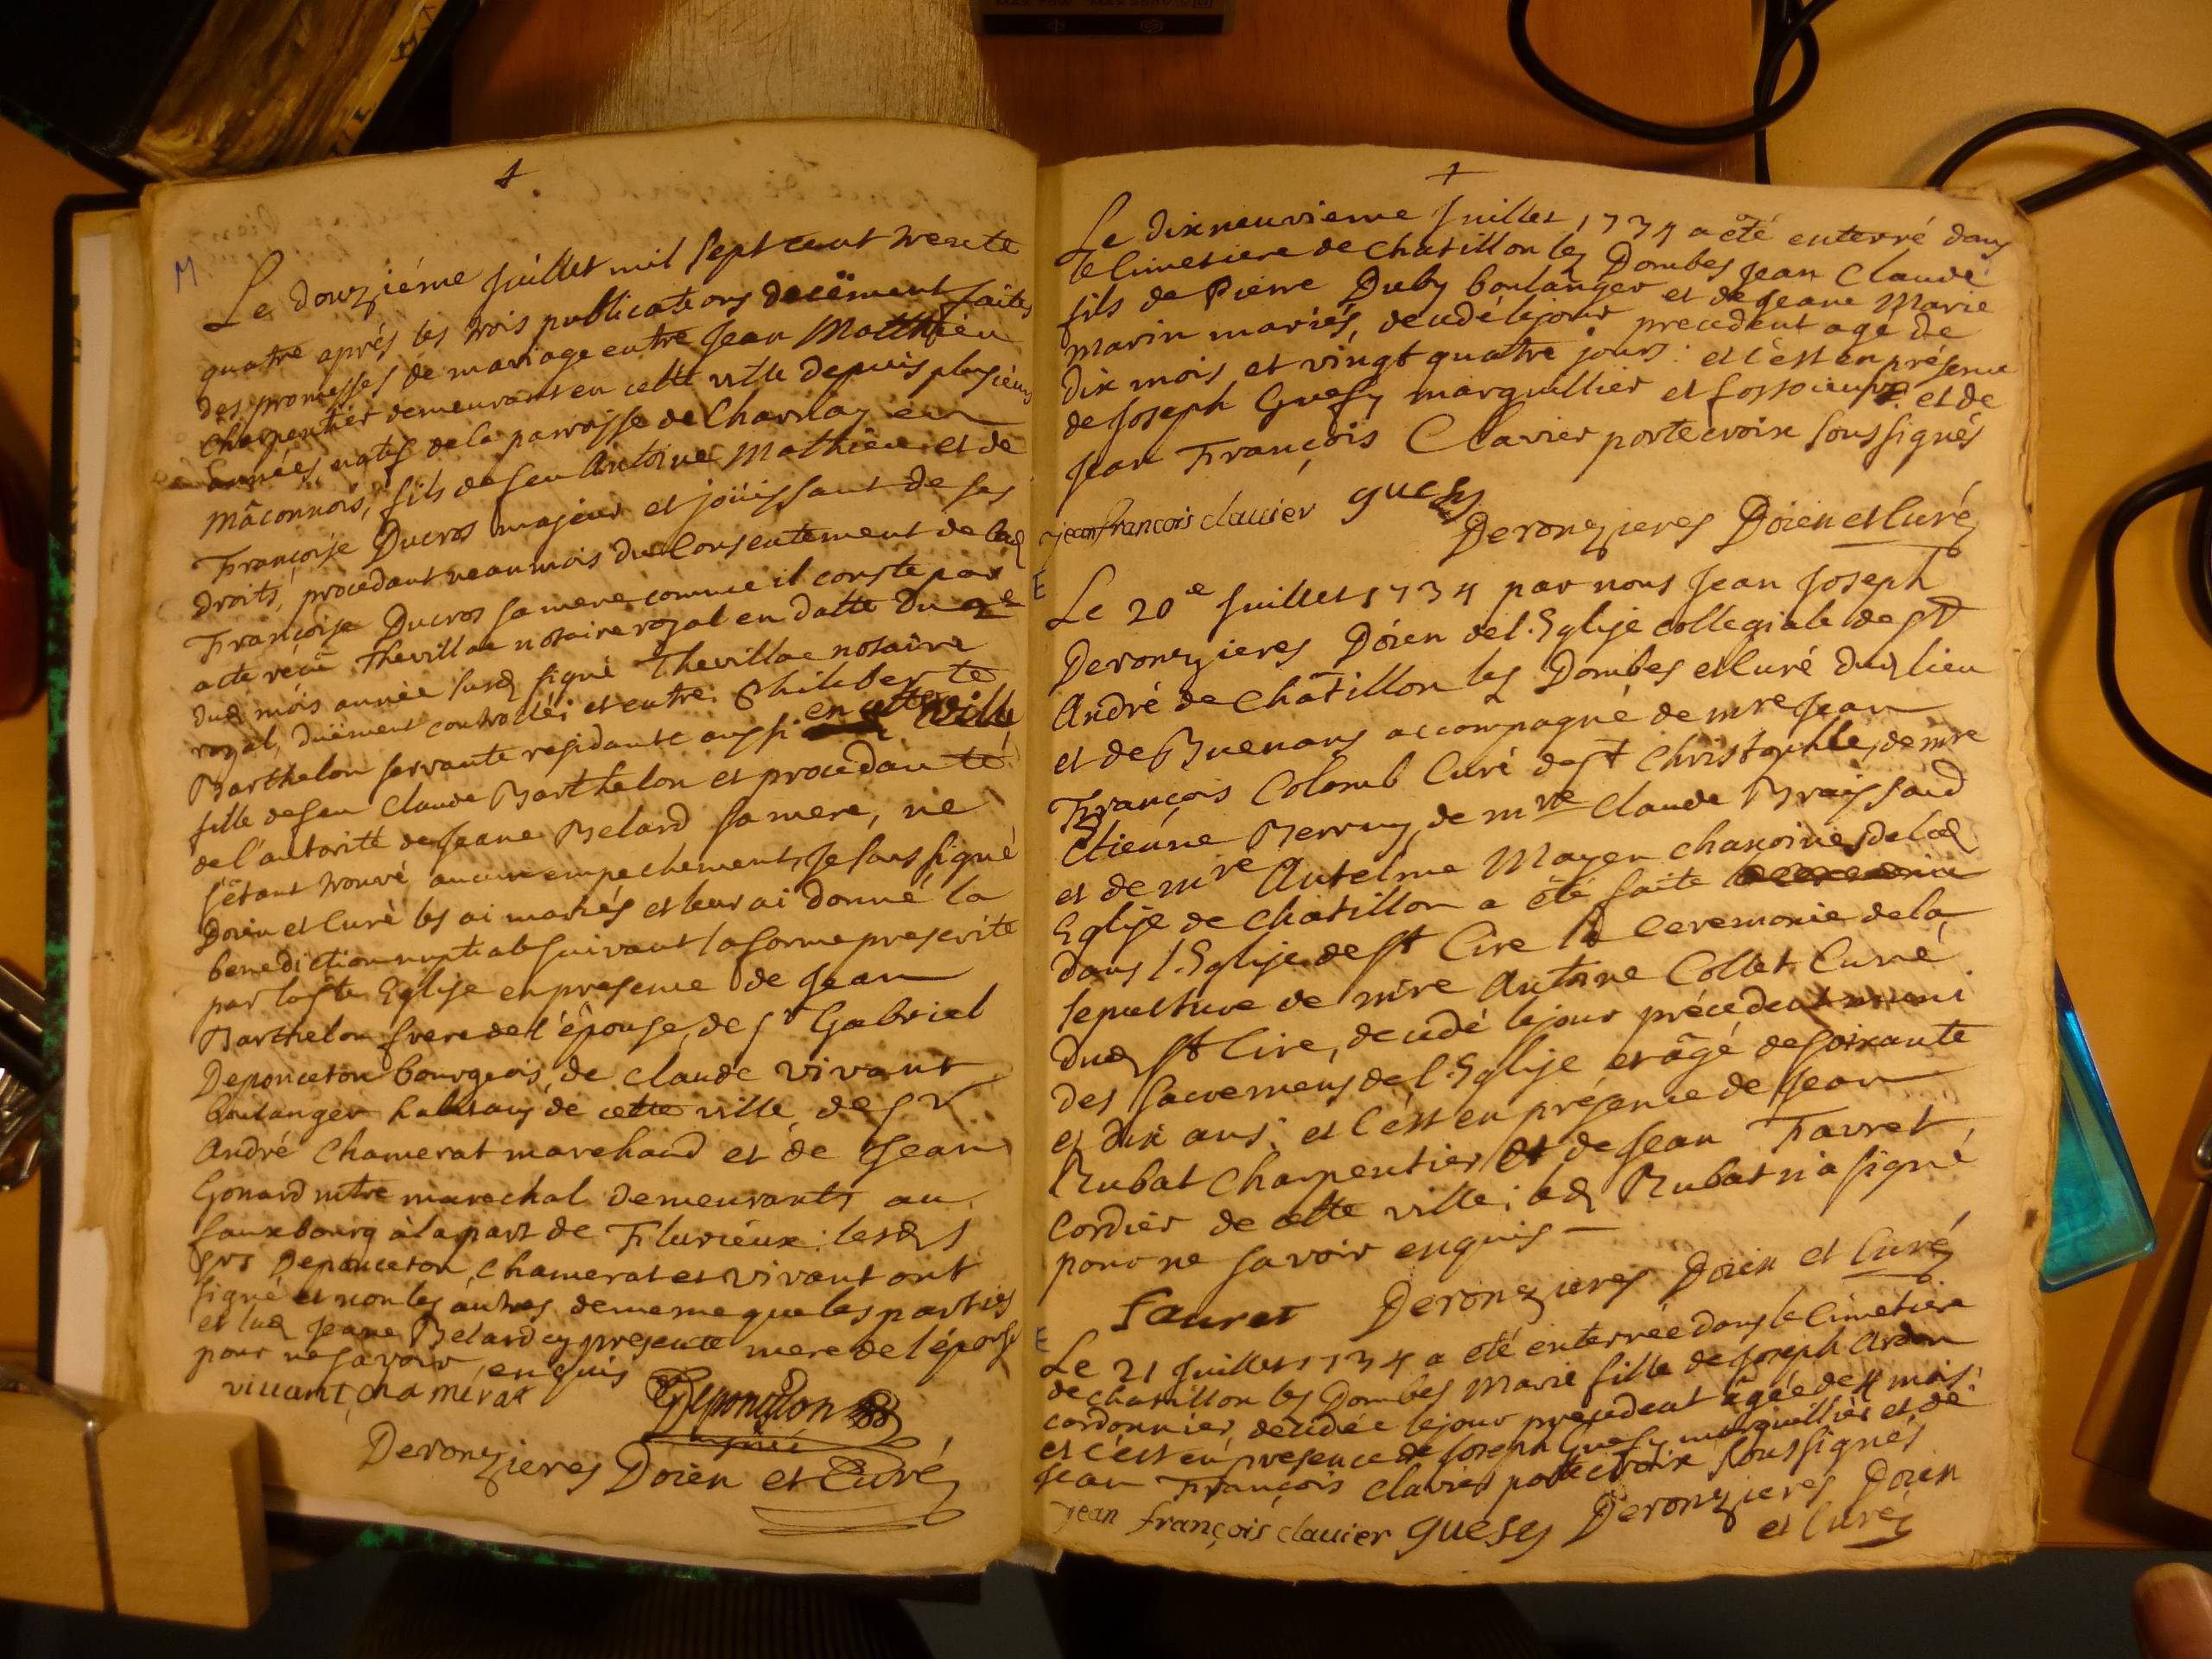 M
Le douziéme Juillet mil sept cent trente
quatre aprés les trois publications deüement faites
des promesses de mariage entre Jean Matthieu
charpentier demeurant en cette ville depuis plusieurs
années, natif de la parroisse de Charnay en
mâconnois, fils de feu Antoine Mathieu et de
Françoise Ducros majeur et joüissant de ses
droits, procedant neanmois du consentement de lad
Françoise Ducros sa mere comme il conste par
acte reçû Thevillac notaire royal en datte du 9e
dud mois année susd signé Thevillac notaire
royal, düement controllé; et entre Philiberte
Barthelon servante residante aussi en cette ville
fille de feu Claude Barthelon et procedante
de l'autorité de Jeane Belard sa mere, ne
s'étant trouvé aucun empechement, Je soussigné
Doien et Curé les ai mariés et leur ai donné la
benediction nuptiale suivant la forme prescrite
par la ste Eglise en presence de Jean
Barthelon frere de l'épouse, de sr Gabriel
Deponceton bourgeois, de claude vivant
boulanger habitans de cette ville de sr
André Chamerat marchand et de Jean
Gonard mtre marechal demeurants au
fauxbourg à la part de Flurieux: lesds
srs Deponceton, chamerat et vivant ont
signé et non les autres de meme que les parties
et lad Jeane Belard cy presente mere de l'épouse
pour ne savoir, enquis
vivant, chamérat Deponceton
Deronzieres Doien et Curé
Le dixneuvieme Juillet 1734 a été enterré dans
le cimetiere de chatillon les Dombes Jean Claude
fils de Pierre Duby boulanger et de Jeane Marie
Marin mariés, decedé le jour precedent agé de
dix mois et vingt quatre jours: et c'est en présence
de Joseph Guesy marguillier et fossoieur et de
Jean François Clavier porte croix soussignés
jean françois clavier guesy
Deronzieres Doien et Curé
E
Le 20e Juillet 1734 par nous Jean Joseph
Deronzieres Doien de l'Eglise collegiale de st
André de Châtillon les Dombes et Curé dud lieu
et de Buenans accompagné de mre Jean
François Colomb Curé de st Christophle, de mre
Etienne Berruy, de mre Claude Braissaud
et de mre Antelme Mayer chanoines de lad
Eglise de chatillon a été faite
dans l'Eglise de st Cire la Ceremonie de la
sepulture de mre Antoine Collet Curé
dud st Cire, decedé le jour précedent muni
des sacremens de l'Eglise et âgé de soixante
et dix ans; et c'est en présence de Jean
Rubat Charpentier et de Jean Favret
Cordier de cette ville; led Rubat n'a signé
pour ne savoir enquis
fauret Deronzieres Doien et Curé
E
Le 21 Juillet 1734 a été enterrée dans le Cimetiere
de chatillon les Dombes Marie fille de Joseph Ardon
cordonnier, decedée le jour precedent âgée de 4 mois:
et c'est en presence de Joseph Guesy marguillier et de
Jean François clavier porte croix soussignés
jean françois clavier guesy Deronzieres Doien
et Curé